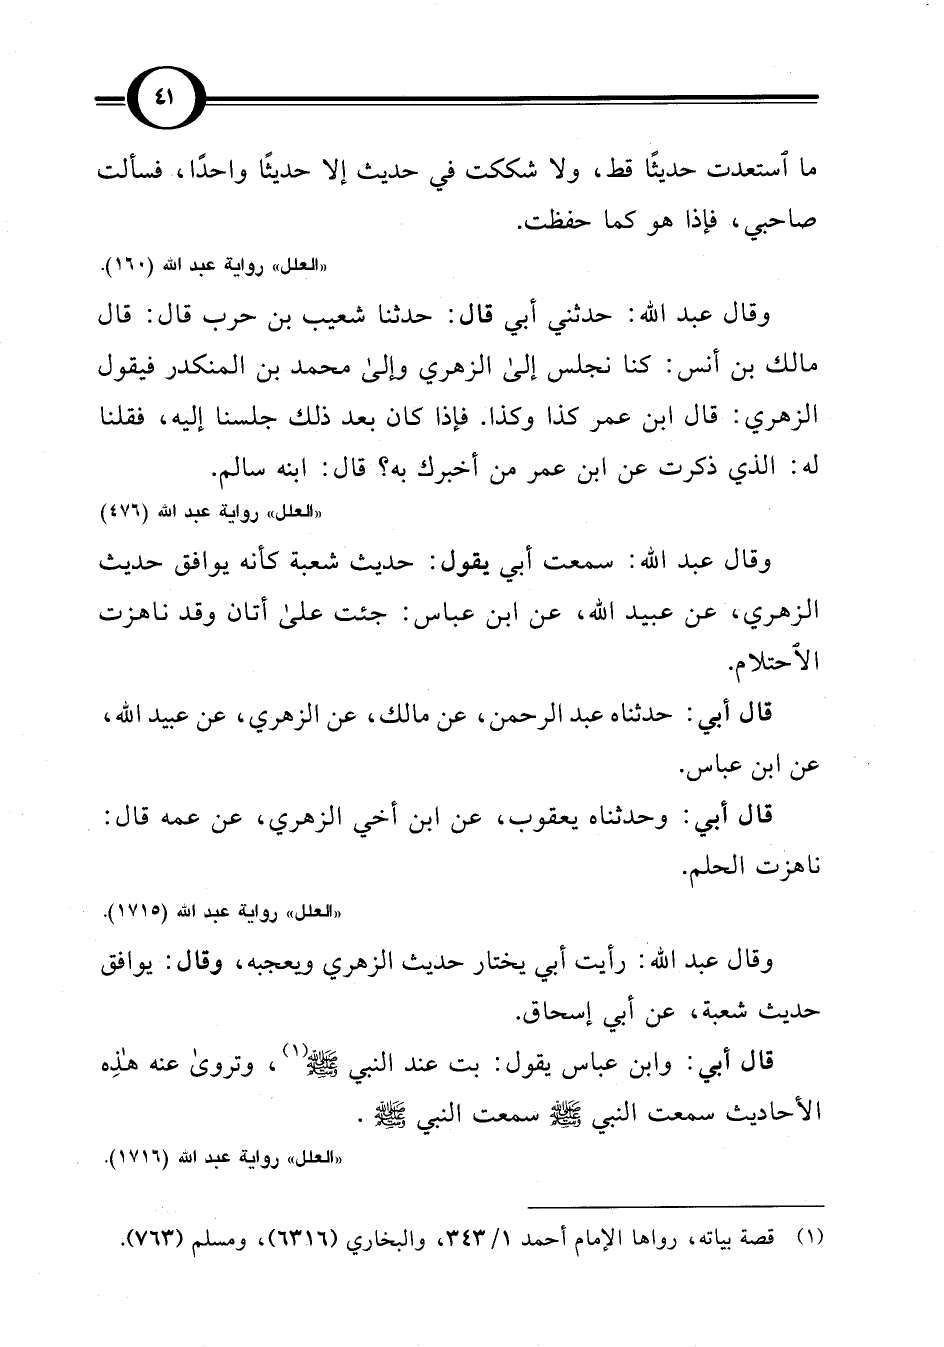 ٤١
ما ٱستعدت حديثًا قط، ولا شككت في حديث إلا حديثًا واحدًا، فسألت
صاحبي، فإذا هو كما حفظت.
«العلل» رواية عبد الله (١٦٠).
وقال عبد الله: حدثني أبي قال: حدثنا شعيب بن حرب قال: قال
مالك بن أنس: كنا نجلس إلىٰ الزهري وإلىٰ محمد بن المنكدر فيقول
الزهري: قال ابن عمر كذا وكذا. فإذا كان بعد ذلك جلسنا إليه، فقلنا
له: الذي ذكرت عن ابن عمر من أخبرك به؟ قال: ابنه سالم.
«العلل» رواية عبد الله (٤٧٦)
وقال عبد الله: سمعت أبي يقول: حديث شعبة كأنه يوافق حديث
الزهري، عن عبيد الله، عن ابن عباس: جئت علىٰ أتان وقد ناهزت
الٱحتلام.
قال أبي: حدثناه عبد الرحمن، عن مالك، عن الزهري، عن عبيد الله،
عن ابن عباس.
قال أبي: وحدثناه يعقوب، عن ابن أخي الزهري، عن عمه قال:
ناهزت الحلم.
«العلل» رواية عبد الله (١٧١٥).
وقال عبد الله: رأيت أبي يختار حديث الزهري ويعجبه، وقال: يوافق
حديث شعبة، عن أبي إسحاق.
قال أبي: وابن عباس يقول: بت عند النبي ﷺ(١)، وتروىٰ عنه هٰذِه
الأحاديث سمعت النبي ﷺ سمعت النبي ﷺ.
«العلل» رواية عبد الله (١٧١٦).
(١) قصة بياته، رواها الإمام أحمد ١/ ٣٤٣، والبخاري (٦٣١٦)، ومسلم (٧٦٣).